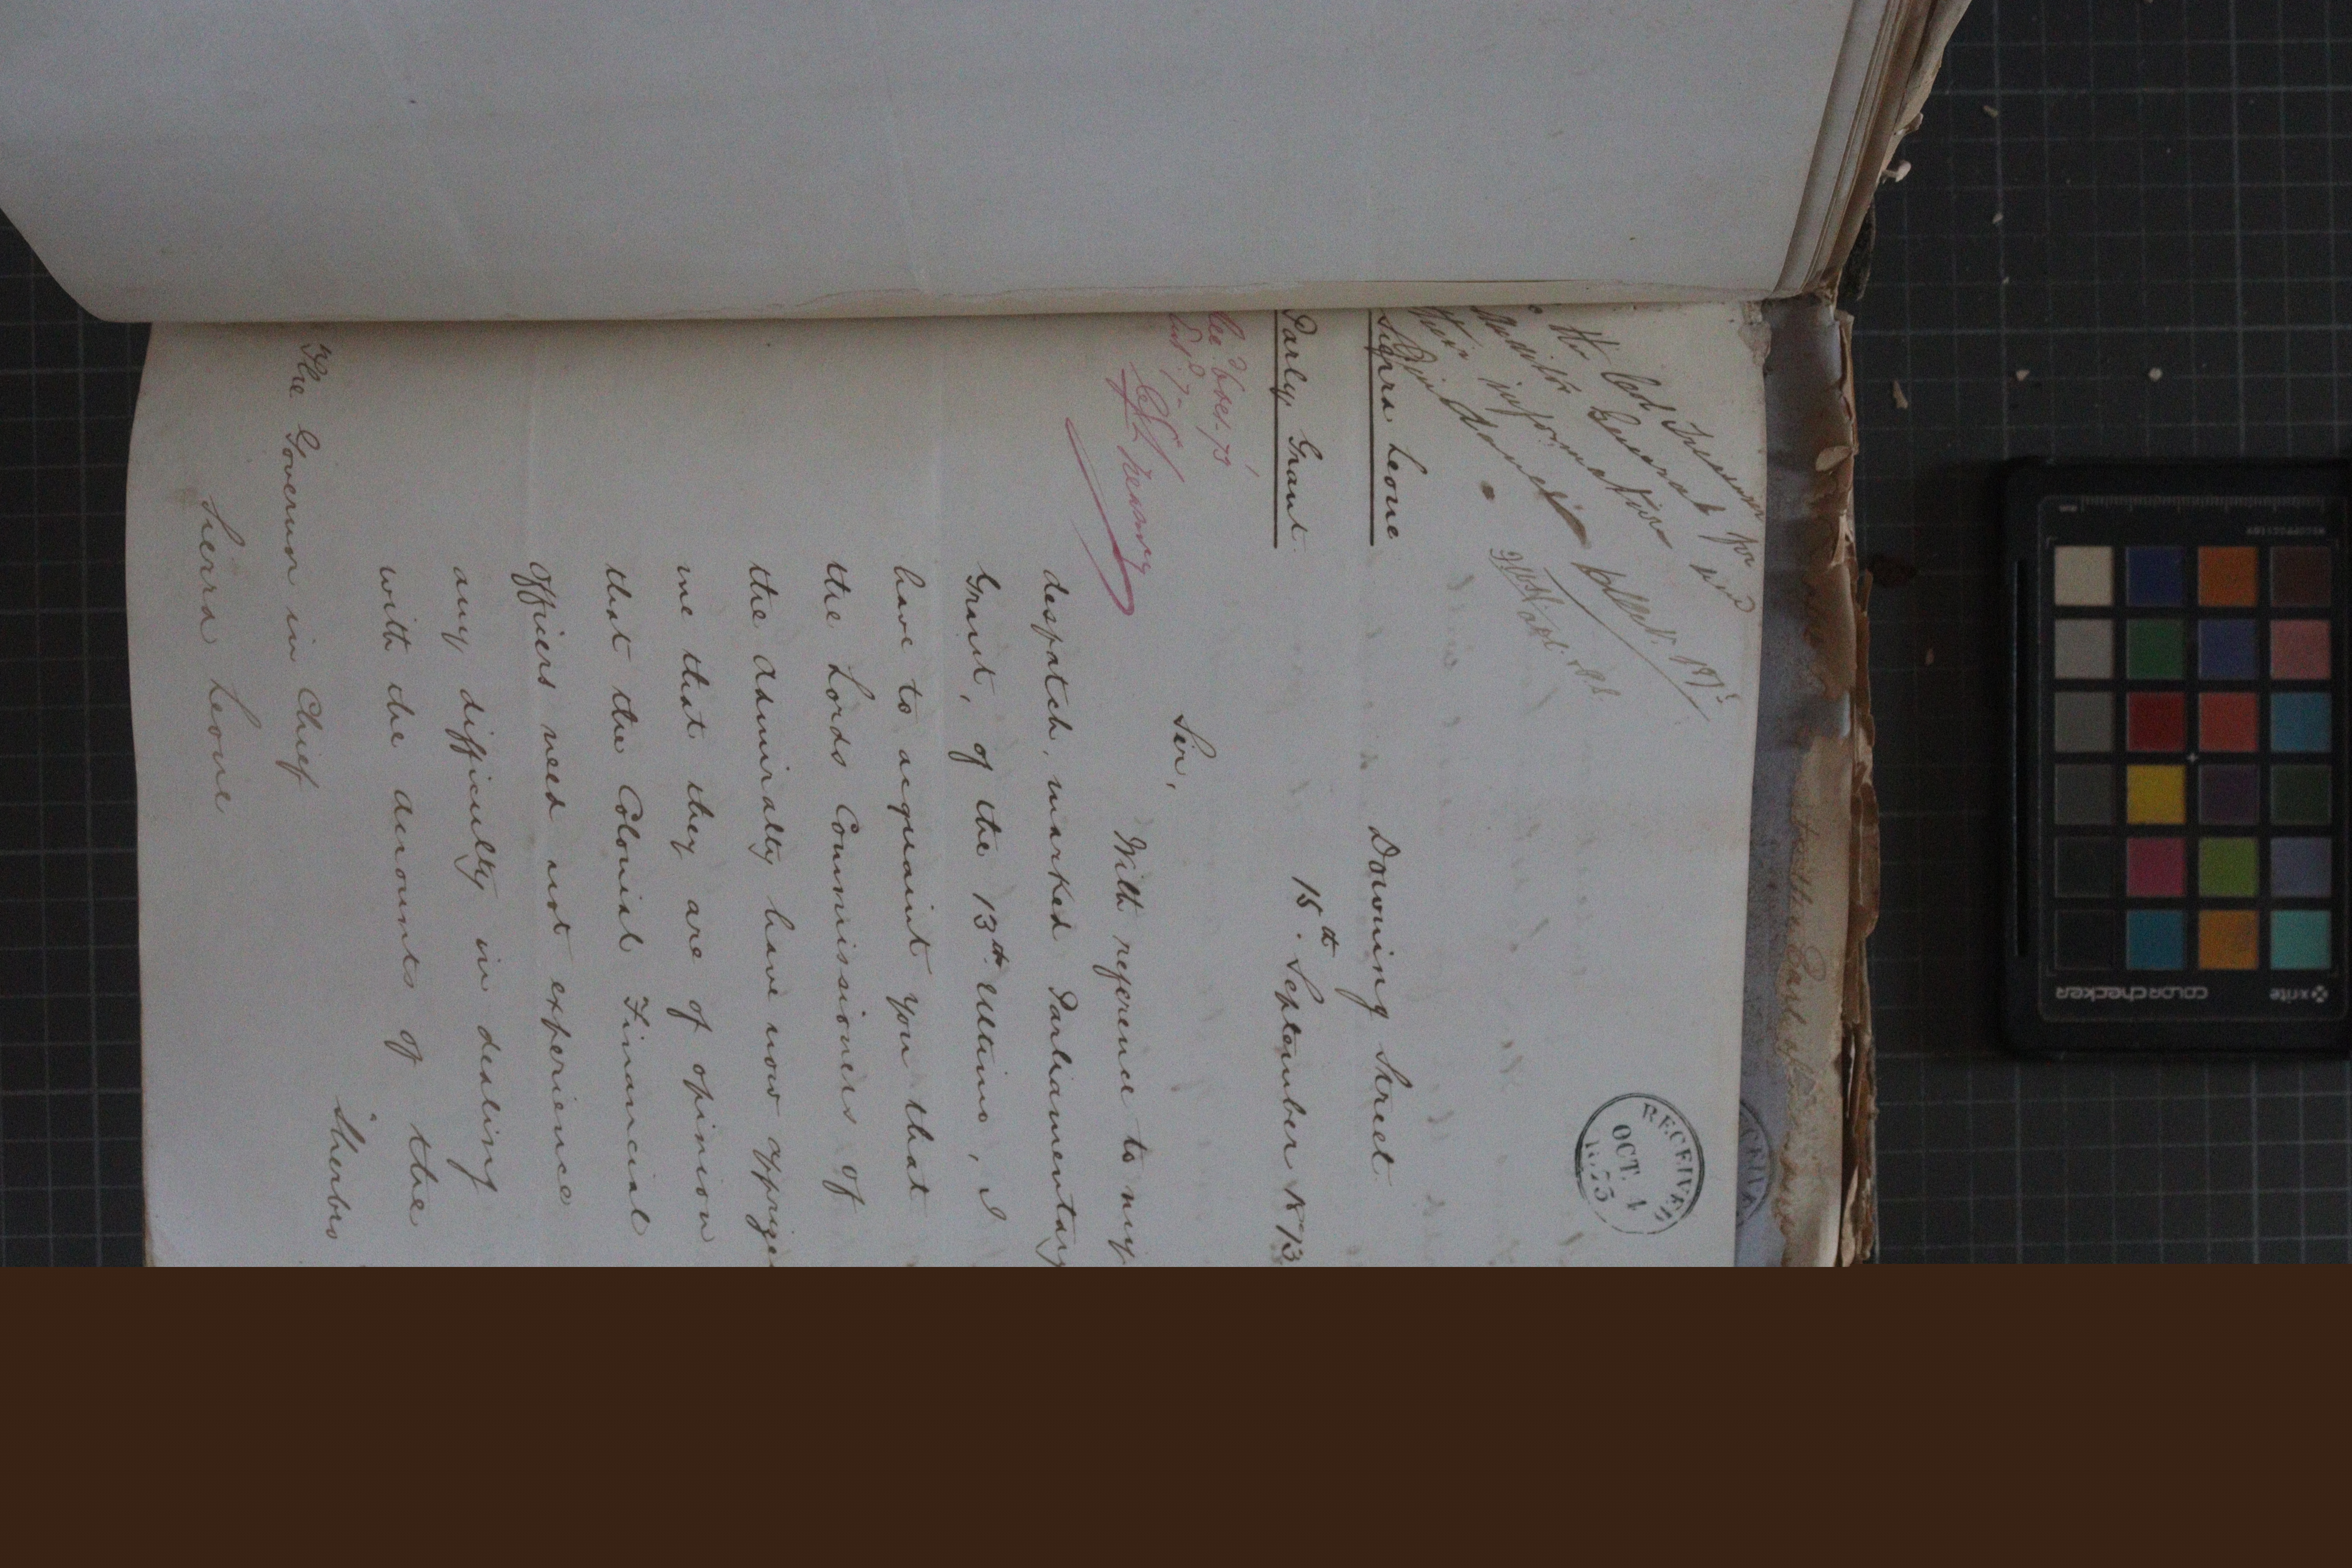 RECEIVED
OCT. 4
1873
Sierra Leone
Parly Grant.
Downing Street
15th. September 1873
Sir,
With reference to my
despatch, marked Parliamentary
Grant, of the 13th. Ultimo, I
have to acquaint you that
the Lords Commissioners of
the Admiralty have now apprize
me that they are of opinion
that the Colonial Financial
Officers need not experience
any difficulty in dealing
with the accounts of the
Sherbro
The Governor in Chief
Sierra Leone
x-rite
colorchecker